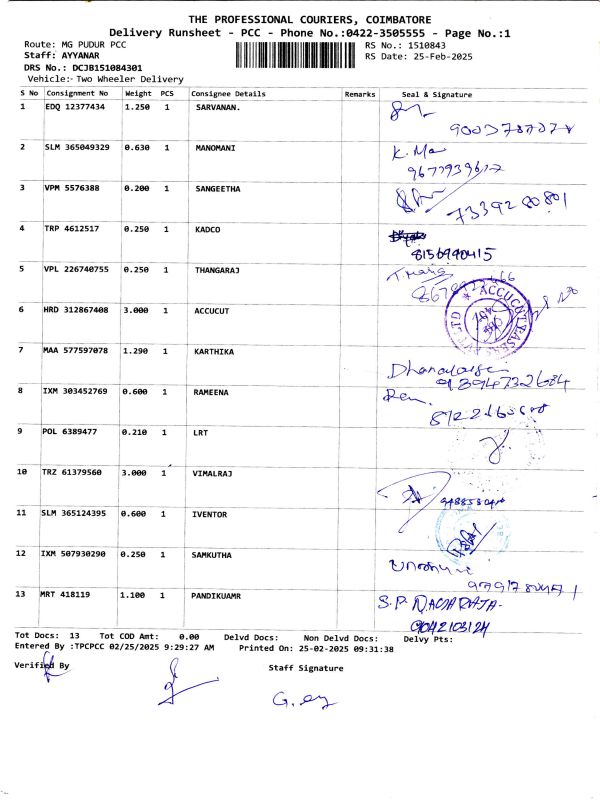 THE PROFESSIONAL COURIERS, COIMBATORE
Delivery Runsheet - PCC - Phone No.:0422-3505555 - Page No.:1
Route: MG PUDUR PCC RS No.: 1510843
Staff: AYYANAR RS Date: 25-Feb-2025
DRS No.: DCJB151084301
Vehicle:- Two Wheeler Delivery
S No Consignment No Weight PCS Consignee Details Remarks Seal & Signature
1 EDQ 12377434 1.250 1 SARVANAN.
2 SLM 365049329 0.630 1 MANOMANI K. Ma
3 VPM 5576388 0.200 1 SANGEETHA
7339280801
4 TRP 4612517 0.250 1 KADCO
8156990415
5 VPL 226740755 0.250 1 THANGARAJ
6 HRD 312867408 3.000 1 ACCUCUT
7 MAA 577597078 1.290 1 KARTHIKA
8 IXM 303452769 0.600 1 RAMEENA
9 POL 6389477 0.210 1 LRT
10 TRZ 61379560 3.000 1 VIMALRAJ
11 SLM 365124395 0.600 1 IVENTOR
12 IXM 507930290 0.250 1 SAMKUTHA
13 MRT 418119 1.100 1 PANDIKUAMR S.P. NAGARAJA.
9042103124
Tot Docs: 13 Tot COD Amt: 0.00 Delvd Docs: Non Delvd Docs: Delvy Pts:
Entered By :TPCPCC 02/25/2025 9:29:27 AM Printed On: 25-02-2025 09:31:38
Verified By Staff Signature